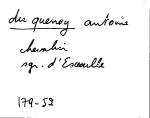 du quenoy antoine
chevalier
sgr. d'Escoeulle
179-52